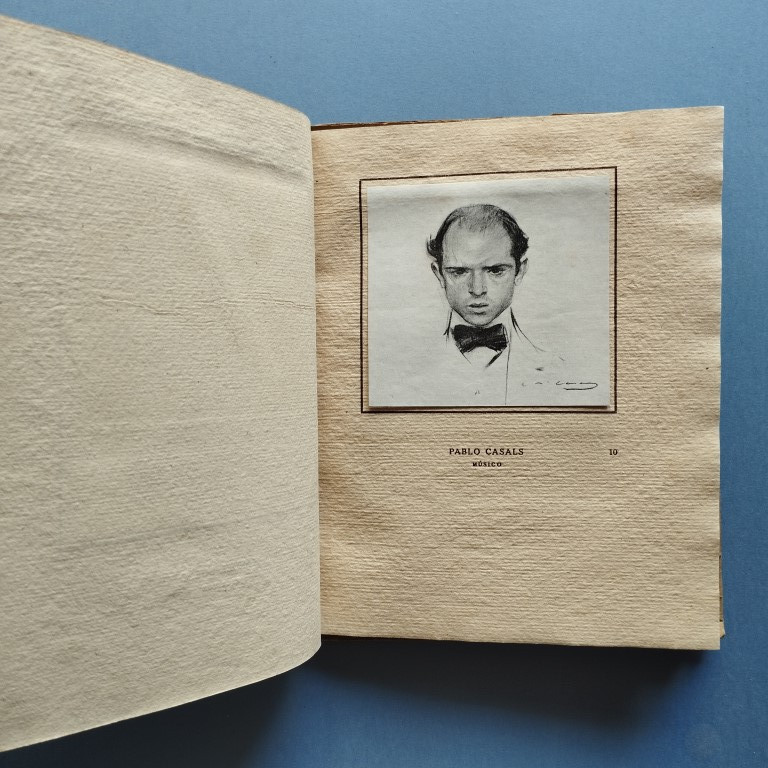 PABLO CASALS
10
MÚSICO